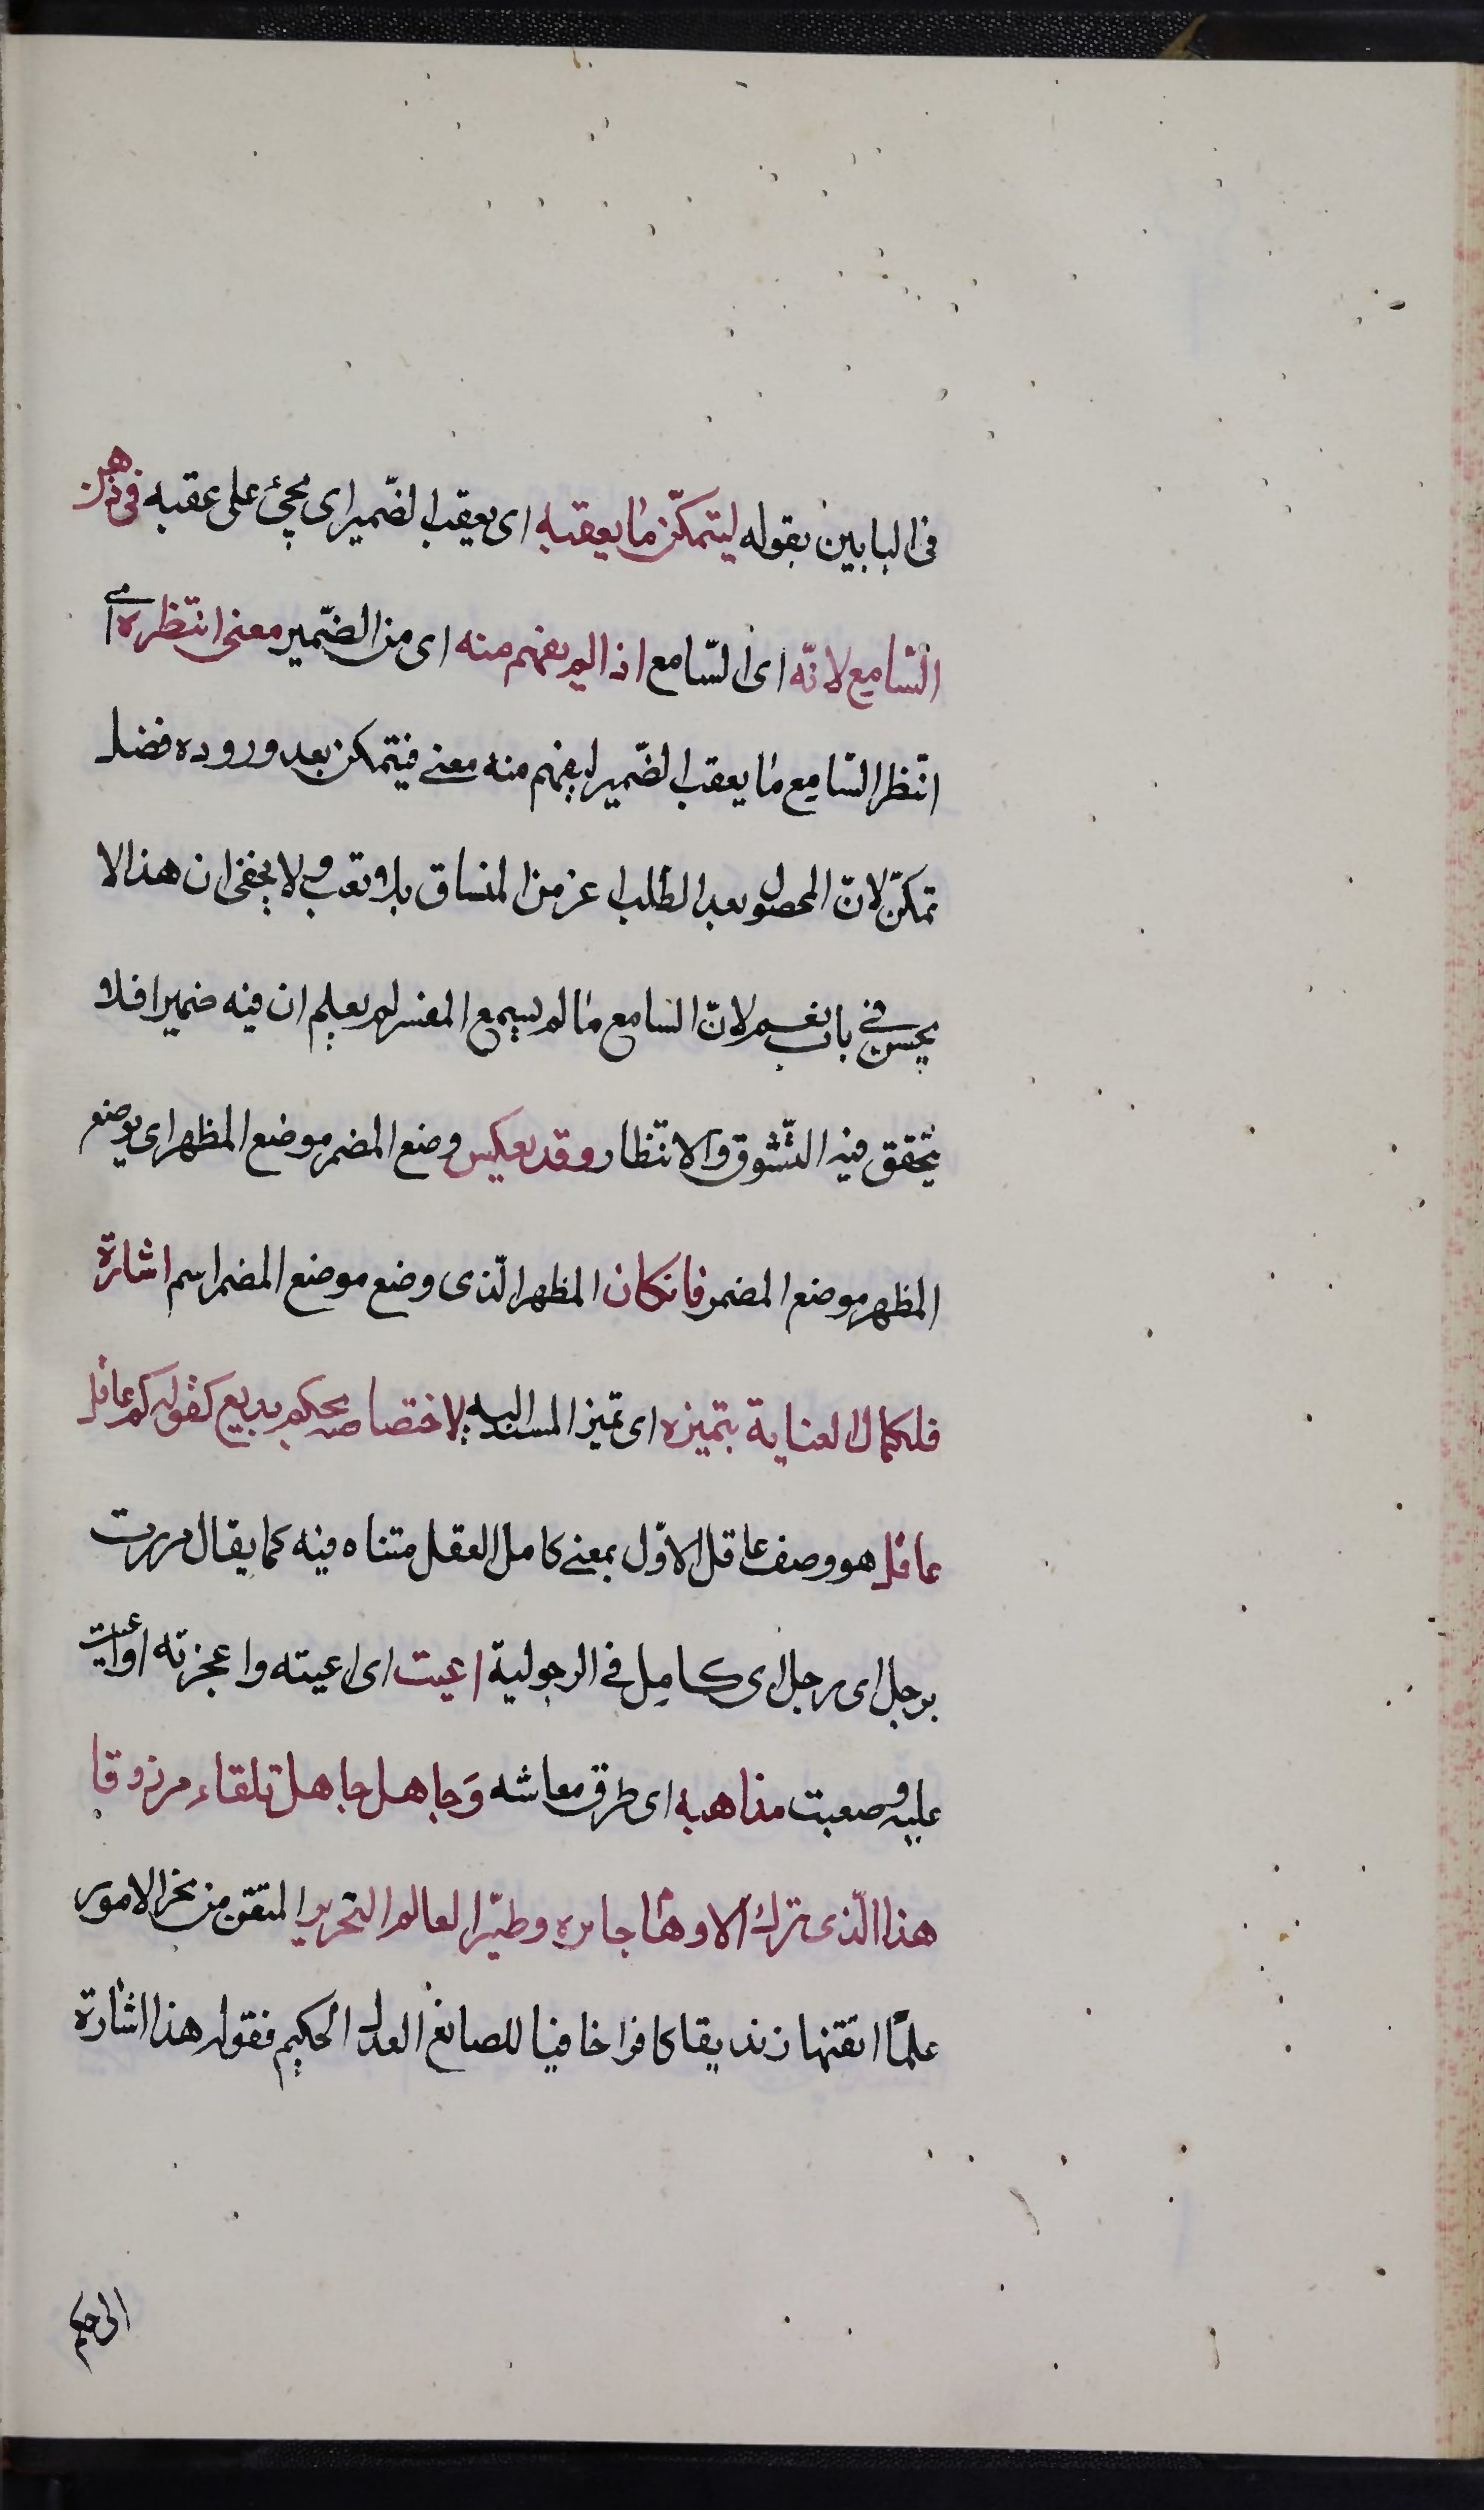 فى البابين بقوله ليتمكّن ما يعقبه اى يعقب الضّمير اى يجئ على عقبه فى ذهن
السّامع لانّه اى السّامع اذا لم يفهم منه اى من الضّمير معنى انتظره اى
انتظر السّامع ما يعقب الضّمير ليفهم منه معنى فيتمكن بعد وروده فضل
تمكّن لانّ المحصول بعد الطلب اعز من المنساق بلا تعب ولا يخفى ان هذا لا
يحسن فى باب نعم لانّ السّامع ما لم يسمع المفسر لم يعلم ان فيه ضميرا فلا
يتحقق فيه التّشوق والانتظار وقد يعكس وضع المضمر موضع المظهر اى يوضع
المظهر موضع المضمر فانكان المظهر الّذى وضع موضع المضمر اسم اشارة
فلكمال العناية بتميزه اى تميز المسند اليه لاختصاصه بحكم بديع كقوله كم عاقل
عاقل هو وصف عاقل الاوّل بمعنى كامل العقل متناه فيه كما يقال مررت
برجل اى رجل اى كامل فى الرجولية اعيت اى اعيته واعجزته او اعيت
عليه وصعبت مذاهبه اى طرق معاشه وَجاهل جاهل تلقاه مرزوقا
هذا الّذى ترك الاوهام حايره وصيّر العالم النحرير المتقن من نحر الامور
علمًا اتقنها زنديقا كافرا نافيا للصانع العدل الحكيم فقوله هذا اشارة
الى حكم